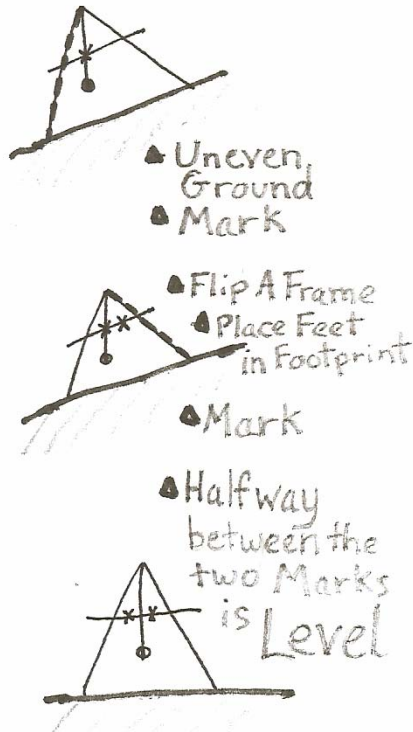 Uneven
Ground
Mark
Flip A Frame
Place Feet
in Footprint
Mark
Halfway
between the
two Marks
is Level